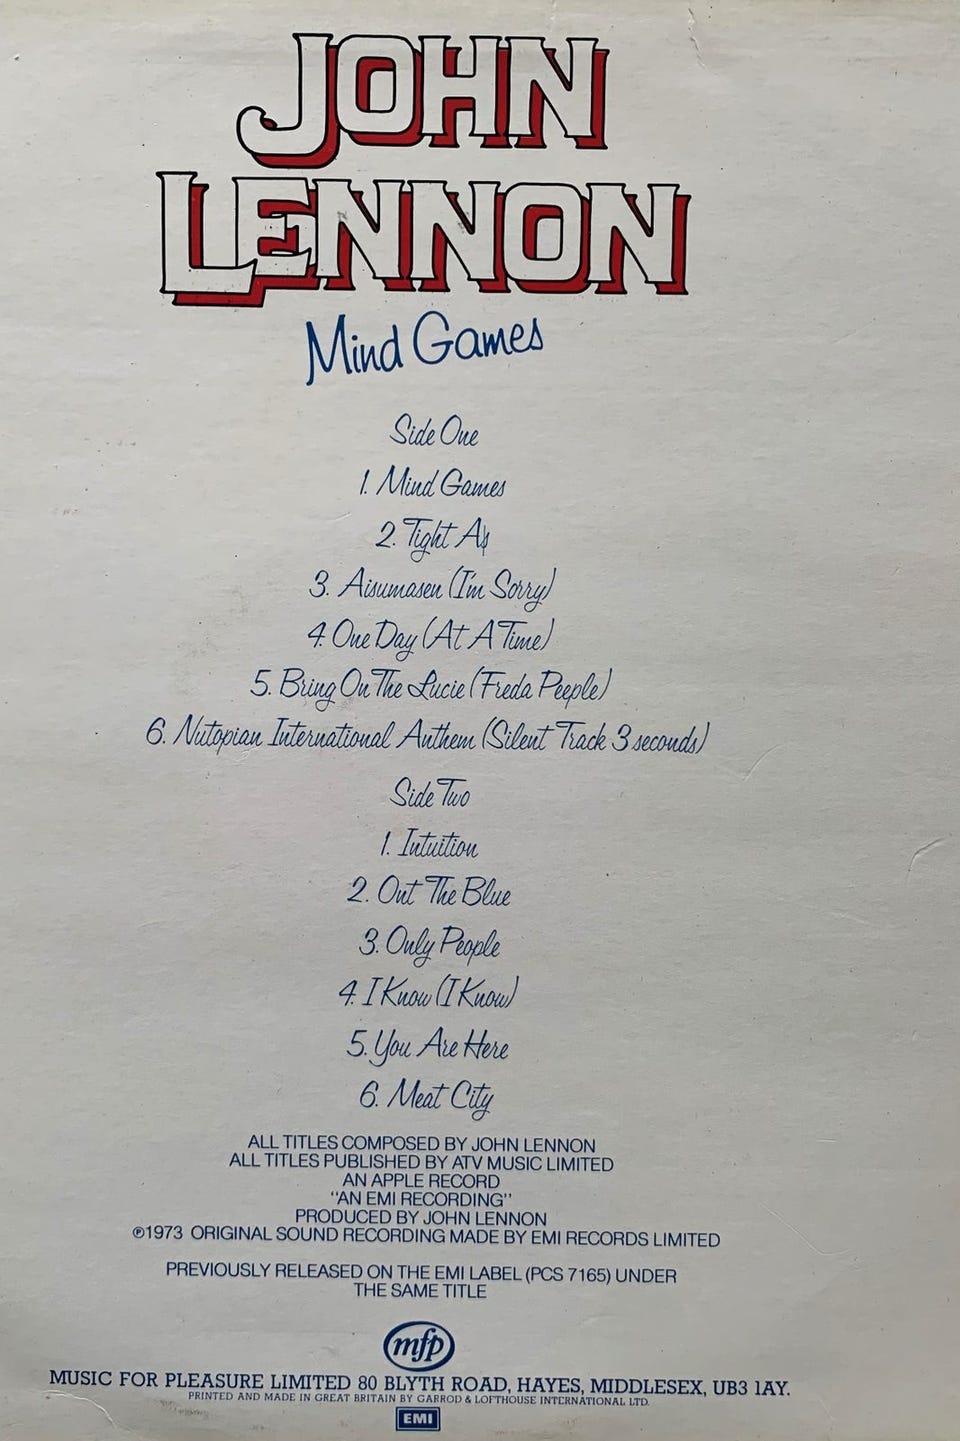 JOHN
LENNON
Mind Games
Side One
1. Mind Games
2. Tight A$
3. Aisumasen (I'm Sorry)
4. One Day (At A Time)
5. Bring On The Lucie (Freda Peeple)
6. Nutopian International Anthem (Silent Track 3 seconds)
Side Two
1. Intuition
2. Out The Blue
3. Only People
4. I Know (I Know)
5. You Are Here
6. Meat City
ALL TITLES COMPOSED BY JOHN LENNON
ALL TITLES PUBLISHED BY ATV MUSIC LIMITED
AN APPLE RECORD
"AN EMI RECORDING"
PRODUCED BY JOHN LENNON
℗1973 ORIGINAL SOUND RECORDING MADE BY EMI RECORDS LIMITED
PREVIOUSLY RELEASED ON THE EMI LABEL (PCS 7165) UNDER
THE SAME TITLE
mfp
MUSIC FOR PLEASURE LIMITED 80 BLYTH ROAD, HAYES, MIDDLESEX, UB3 1AY.
PRINTED AND MADE IN GREAT BRITAIN BY GARROD & LOFTHOUSE INTERNATIONAL LTD.
EMI